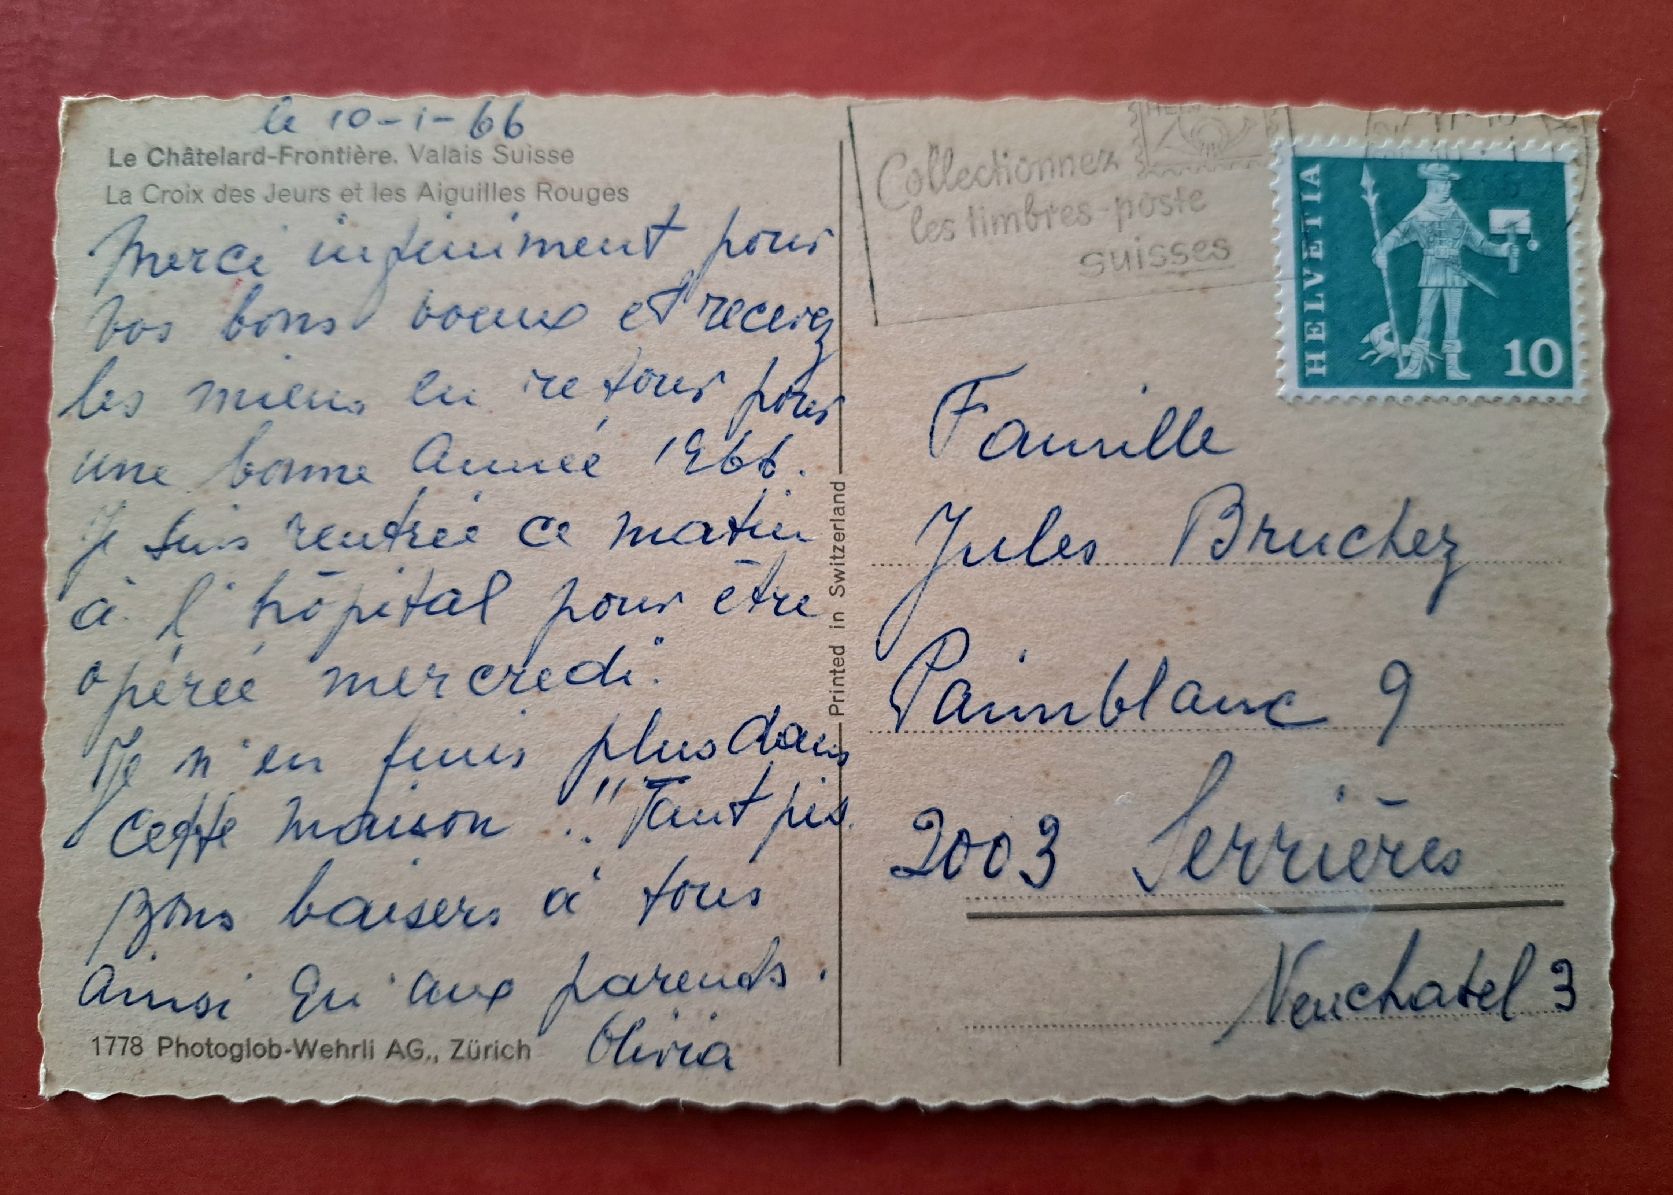 le 10-1-66
Le Châtelard-Frontière. Valais Suisse
La Croix des Jeurs et les Aiguilles Rouges
Merci infiniment pour
vos bons voeux et recevez
les miens en retour pour
une bonne Année 1966.
Je suis rentrée ce matin
à l'hôpital pour être
opérée mercredi.
Je n'en puis plus dans
cette maison !! Tant pis.
Bons baisers à tous
Ainsi qu'aux parents.
Olivia
1778 Photoglob-Wehrli AG., Zürich
Printed in Switzerland
Collectionnez
les timbres-poste
suisses
HELVETIA
10
Famille
Jules Bruchez
Painblanc 9
2003 Serrières
Neuchatel 3